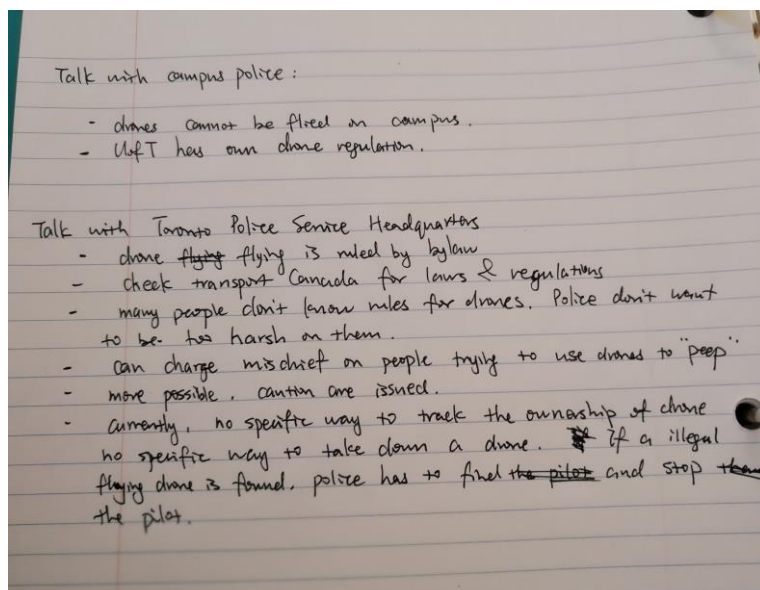 Talk with campus police:
- drones cannot be flied on campus.
- UofT has own drone regulation.
Talk with Toronto Police Service Headquarters
- drone flying flying is ruled by bylaw
- check transport Canada for laws & regulations
- many people don't know rules for drones. Police don't want
to be too harsh on them.
- can charge mischief on people trying to use drones to "peep"
- more possible, caution are issued.
- currently, no specific way to track the ownership of drone
no specific way to take down a drone. if a illegal
flying drone is found, police has to find the pilot and stop them
the pilot.